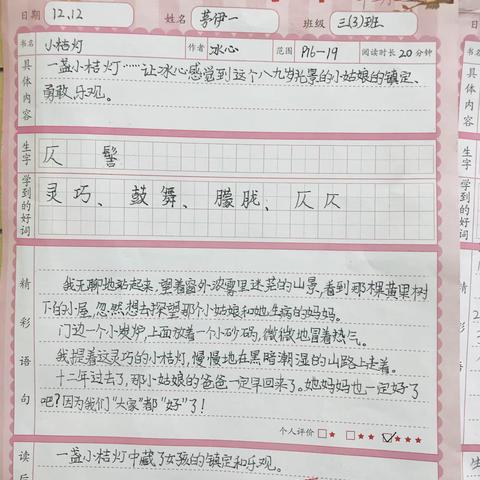 日期 12.12 姓名 茅伊一 班级 三(3)班
书名 小桔灯 作者 冰心 范围 P16-19 阅读时长 20 分钟
具体内容
一盏小桔灯……让冰心感觉到这个八九岁光景的小姑娘的镇定、
勇敢、乐观。
生字
仄 髻
学到的好词
灵巧、鼓舞、朦胧、仄仄
精彩语句
我无聊地站起来,望着窗外浓雾里迷茫的山景,看到那棵黄果树
下的小屋,忽然想去探望那个小姑娘和她生病的妈妈。
门边一个小炭炉,上面放着一个小砂锅,微微地冒着热气。
我提着这灵巧的小桔灯,慢慢地在黑暗潮湿的山路上走着。
十二年过去了,那小姑娘的爸爸一定早回来了。她妈妈也一定好了
吧?因为我们“大家”都“好”了!
个人评价 □★ □★★ ☑★★★
读后
一盏小桔灯中藏了女孩的镇定和乐观。